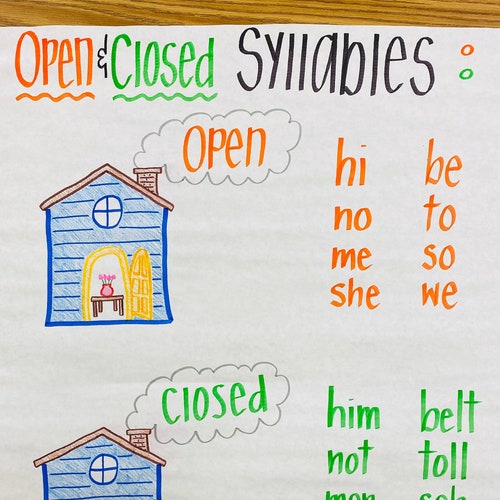 Open & Closed Syllables :
Open
hi be
no to
me so
she we
closed
him belt
not toll